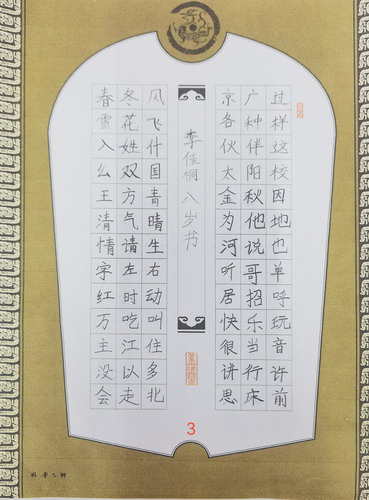 春冬风
雪花飞
入姓什
么双国
王方青
清气晴
情请生
字左右
红时动
万吃叫
主江住
没以多
会走北
京广过
各种样
伙伴这
太阳校
金秋因
为他地
河说也
听哥单
居招呼
快乐玩
很当音
讲行许
思床前
李佳桐 八岁书
3